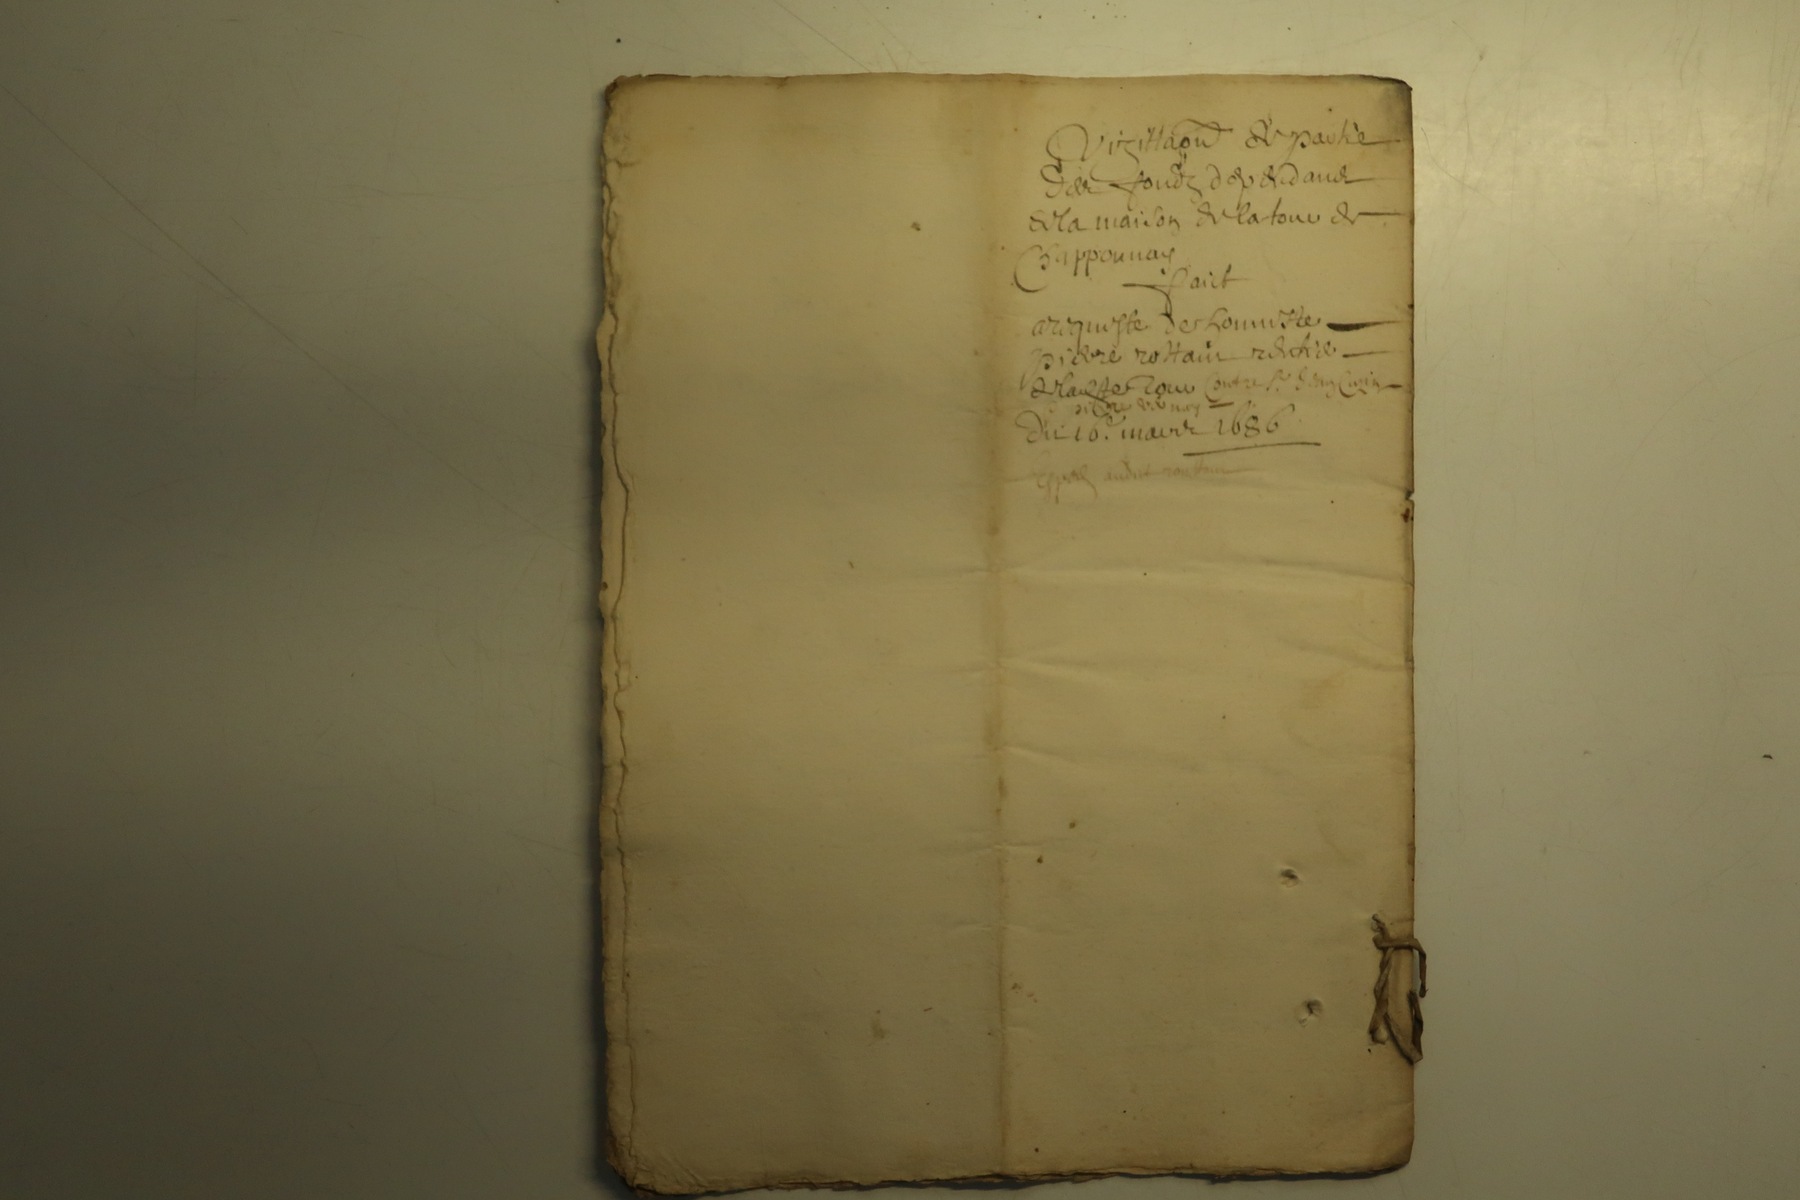 Vizittaon de partie
des fondz dependans
de la maison de la tour de
Chapponnay
faict
a requeste de honneste
pierre rottain rentier
de laditte Tour Contre Sr
Du 16e mars 1686